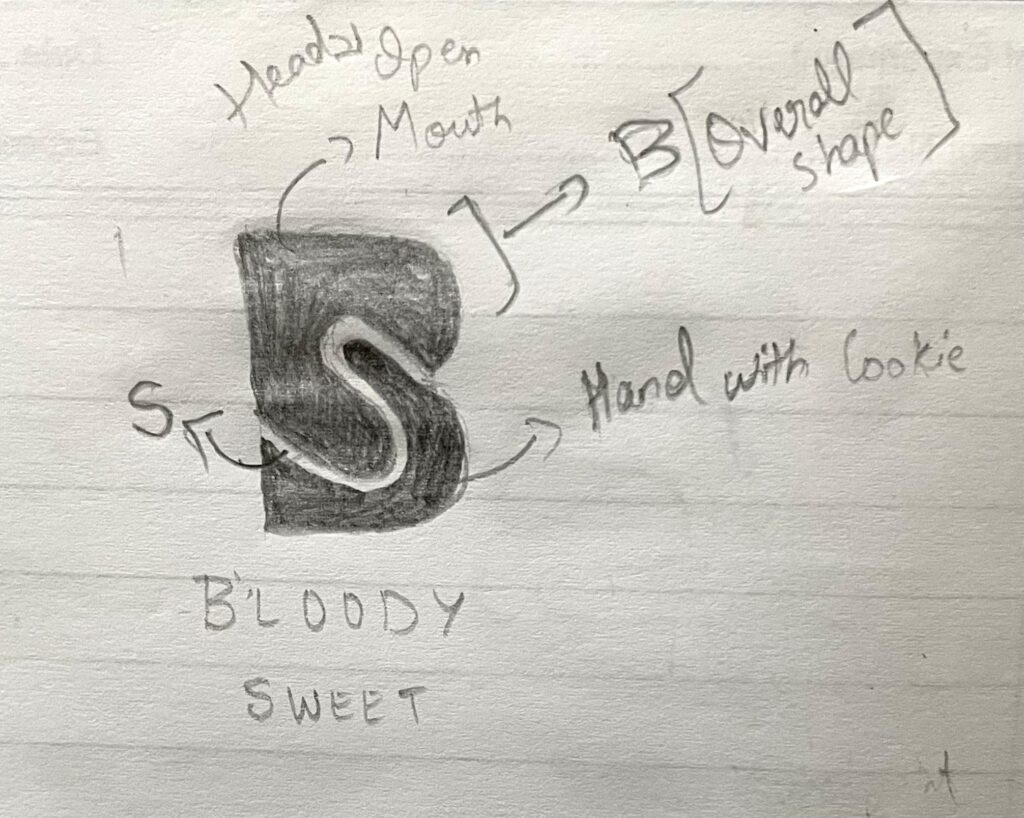 Head & Open
Mouth
B [Overall
shape]
S
Hand with Cookie
B'LOODY
SWEET